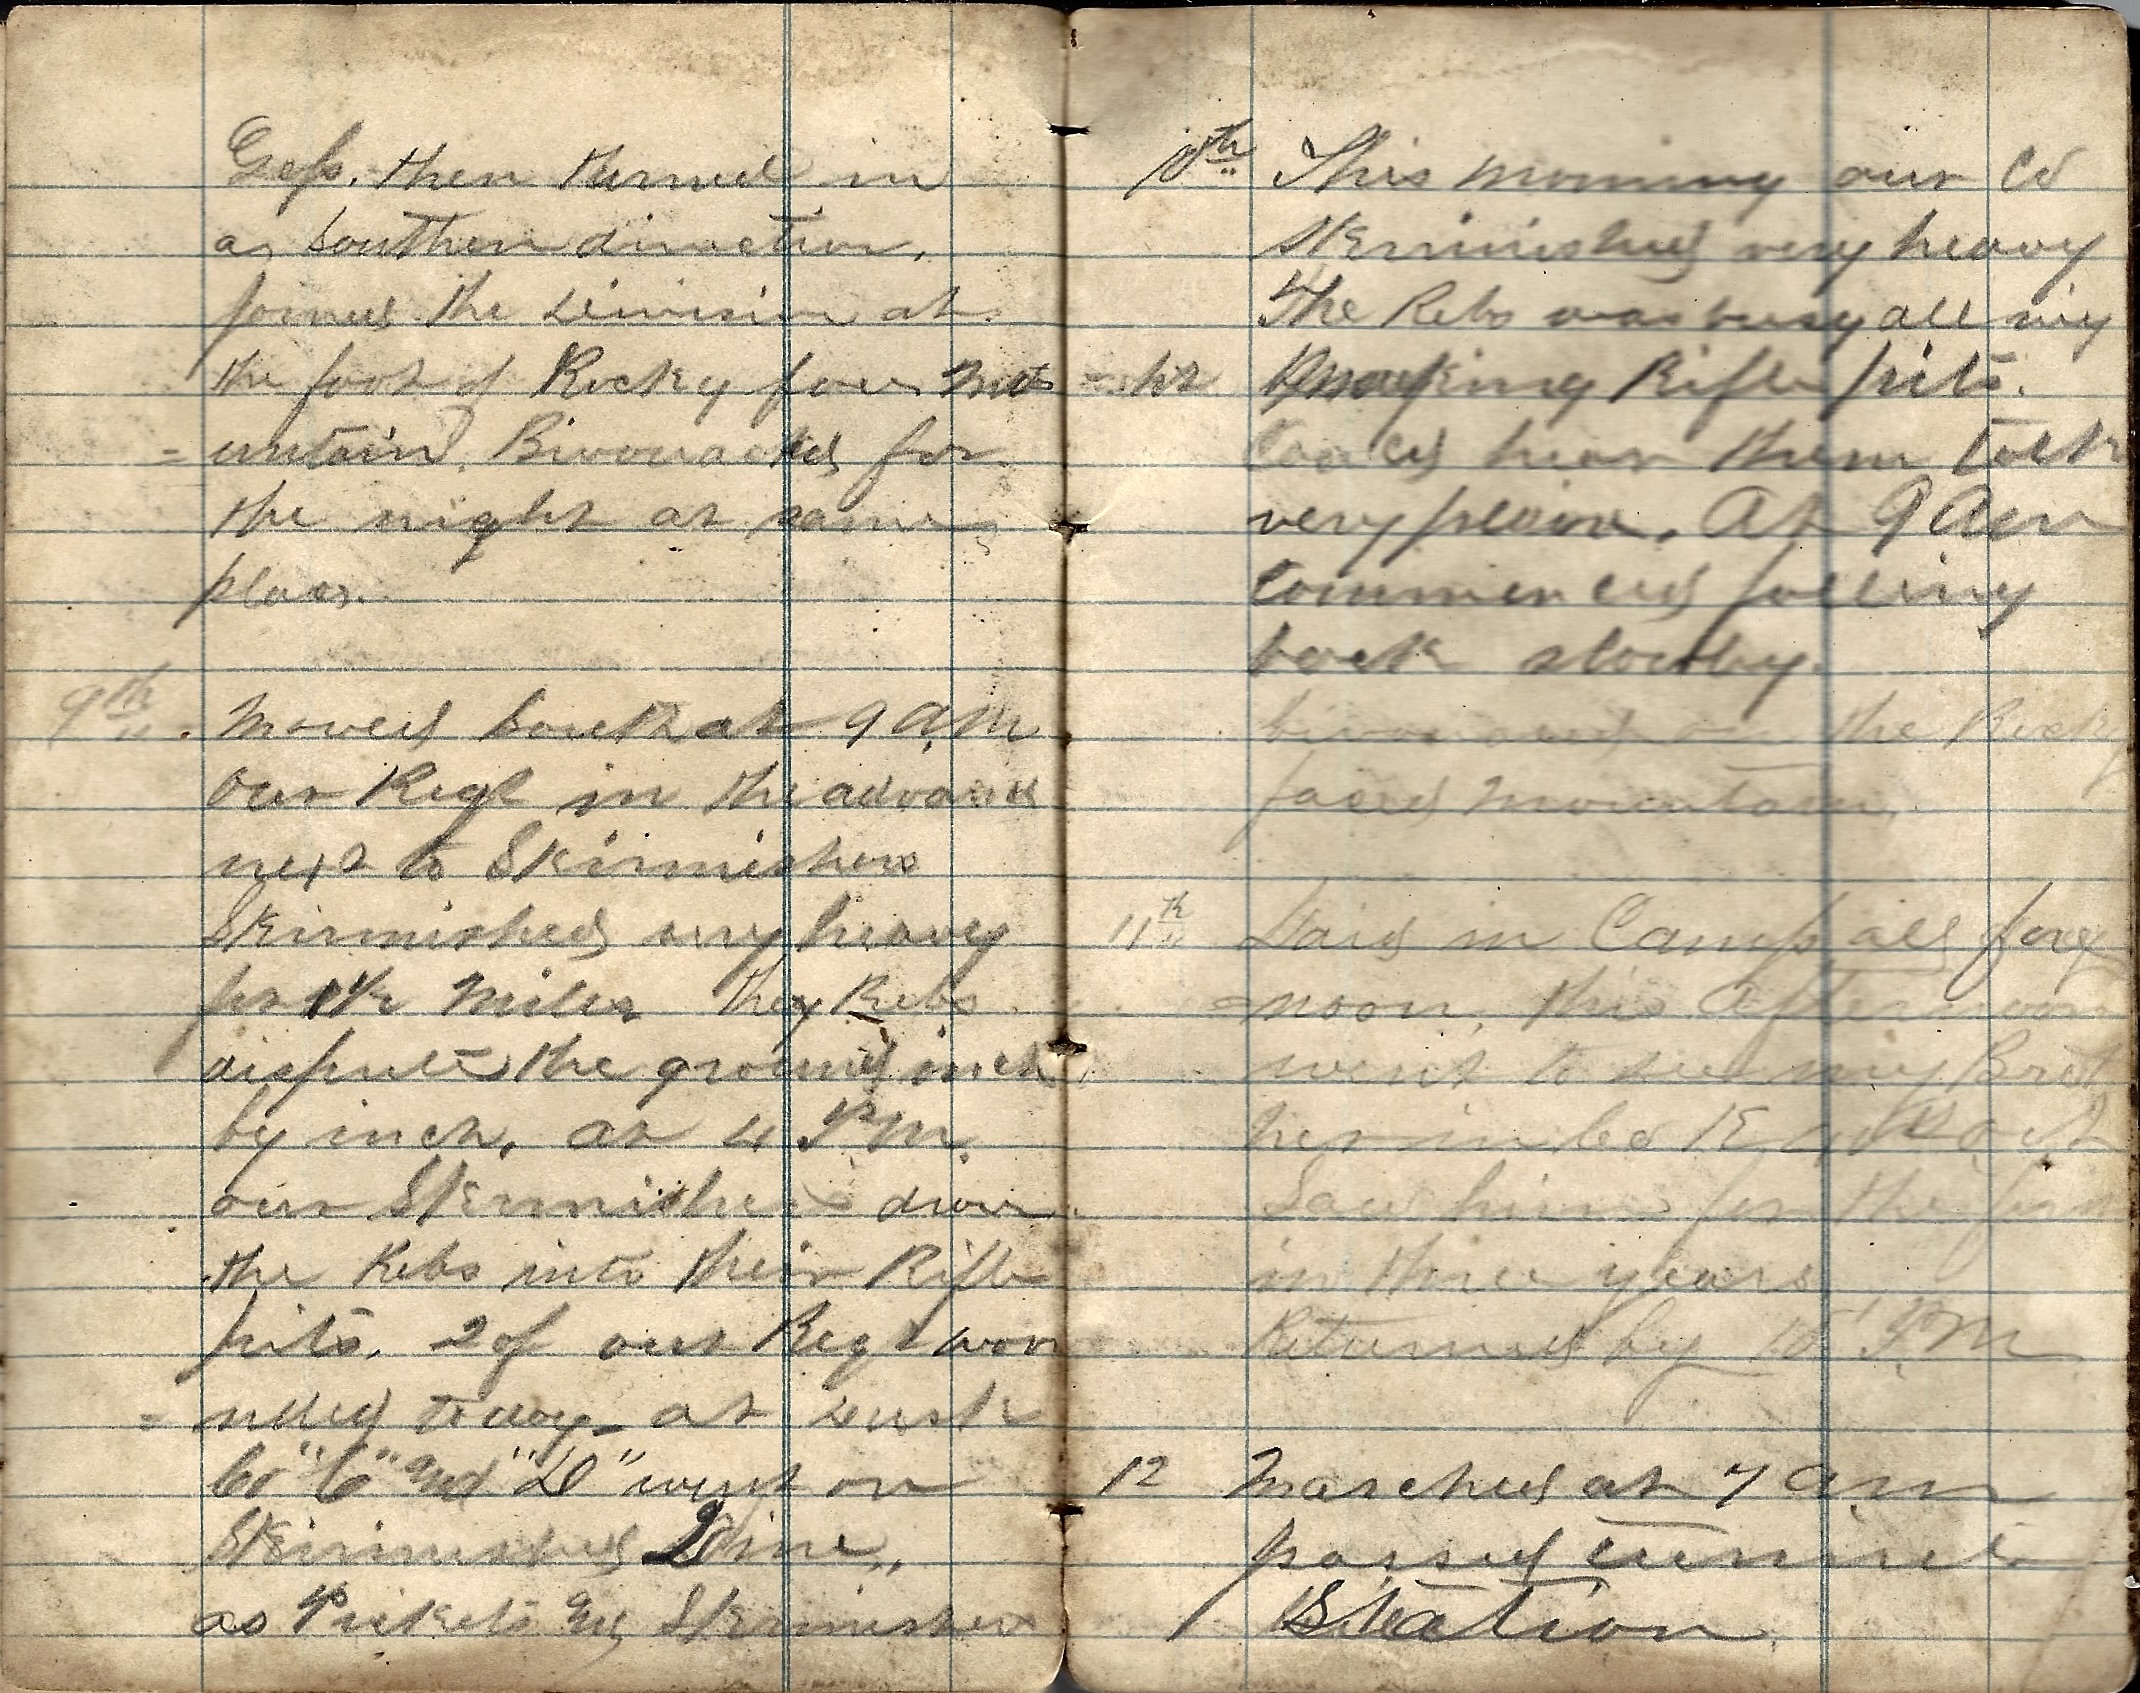 Gap. then turned in
a southern direction,
joined the Division at
the foot of Rocky face Mo
= untain. Bivouacked for
the night at same
place.
9th Moved South at 9 a.m
Our Regt in the advance
next to Skirmishers
Skirmished very heavy
for 1 1/2 Miles they Rebs
dispute the ground inch
by inch, at 4 P.M.
our Skirmishers drove
the Rebs into their Rifle
pits. 2 of our Regt wou
= nded today. at dusk
Co "C" and "D" went on
Skirmished Line,
as Pickets and Skirmishers
10th This morning our Co
Skirmished very heavy
The Rebs was busy all nig
= ht making Rifle pits.
Could hear them talk
very plain. At 9 am
Commenced falling
back slowly.
bivouaced on the Rocky
faced Mountain.
11th Laid in Camp all for
= noon, this afternoon
went to see my Brot
her in Co E
Saw him for the first
in three years
Returned by 10 P.M
12 Marched at 7 a.m
passed Tunnel
Station